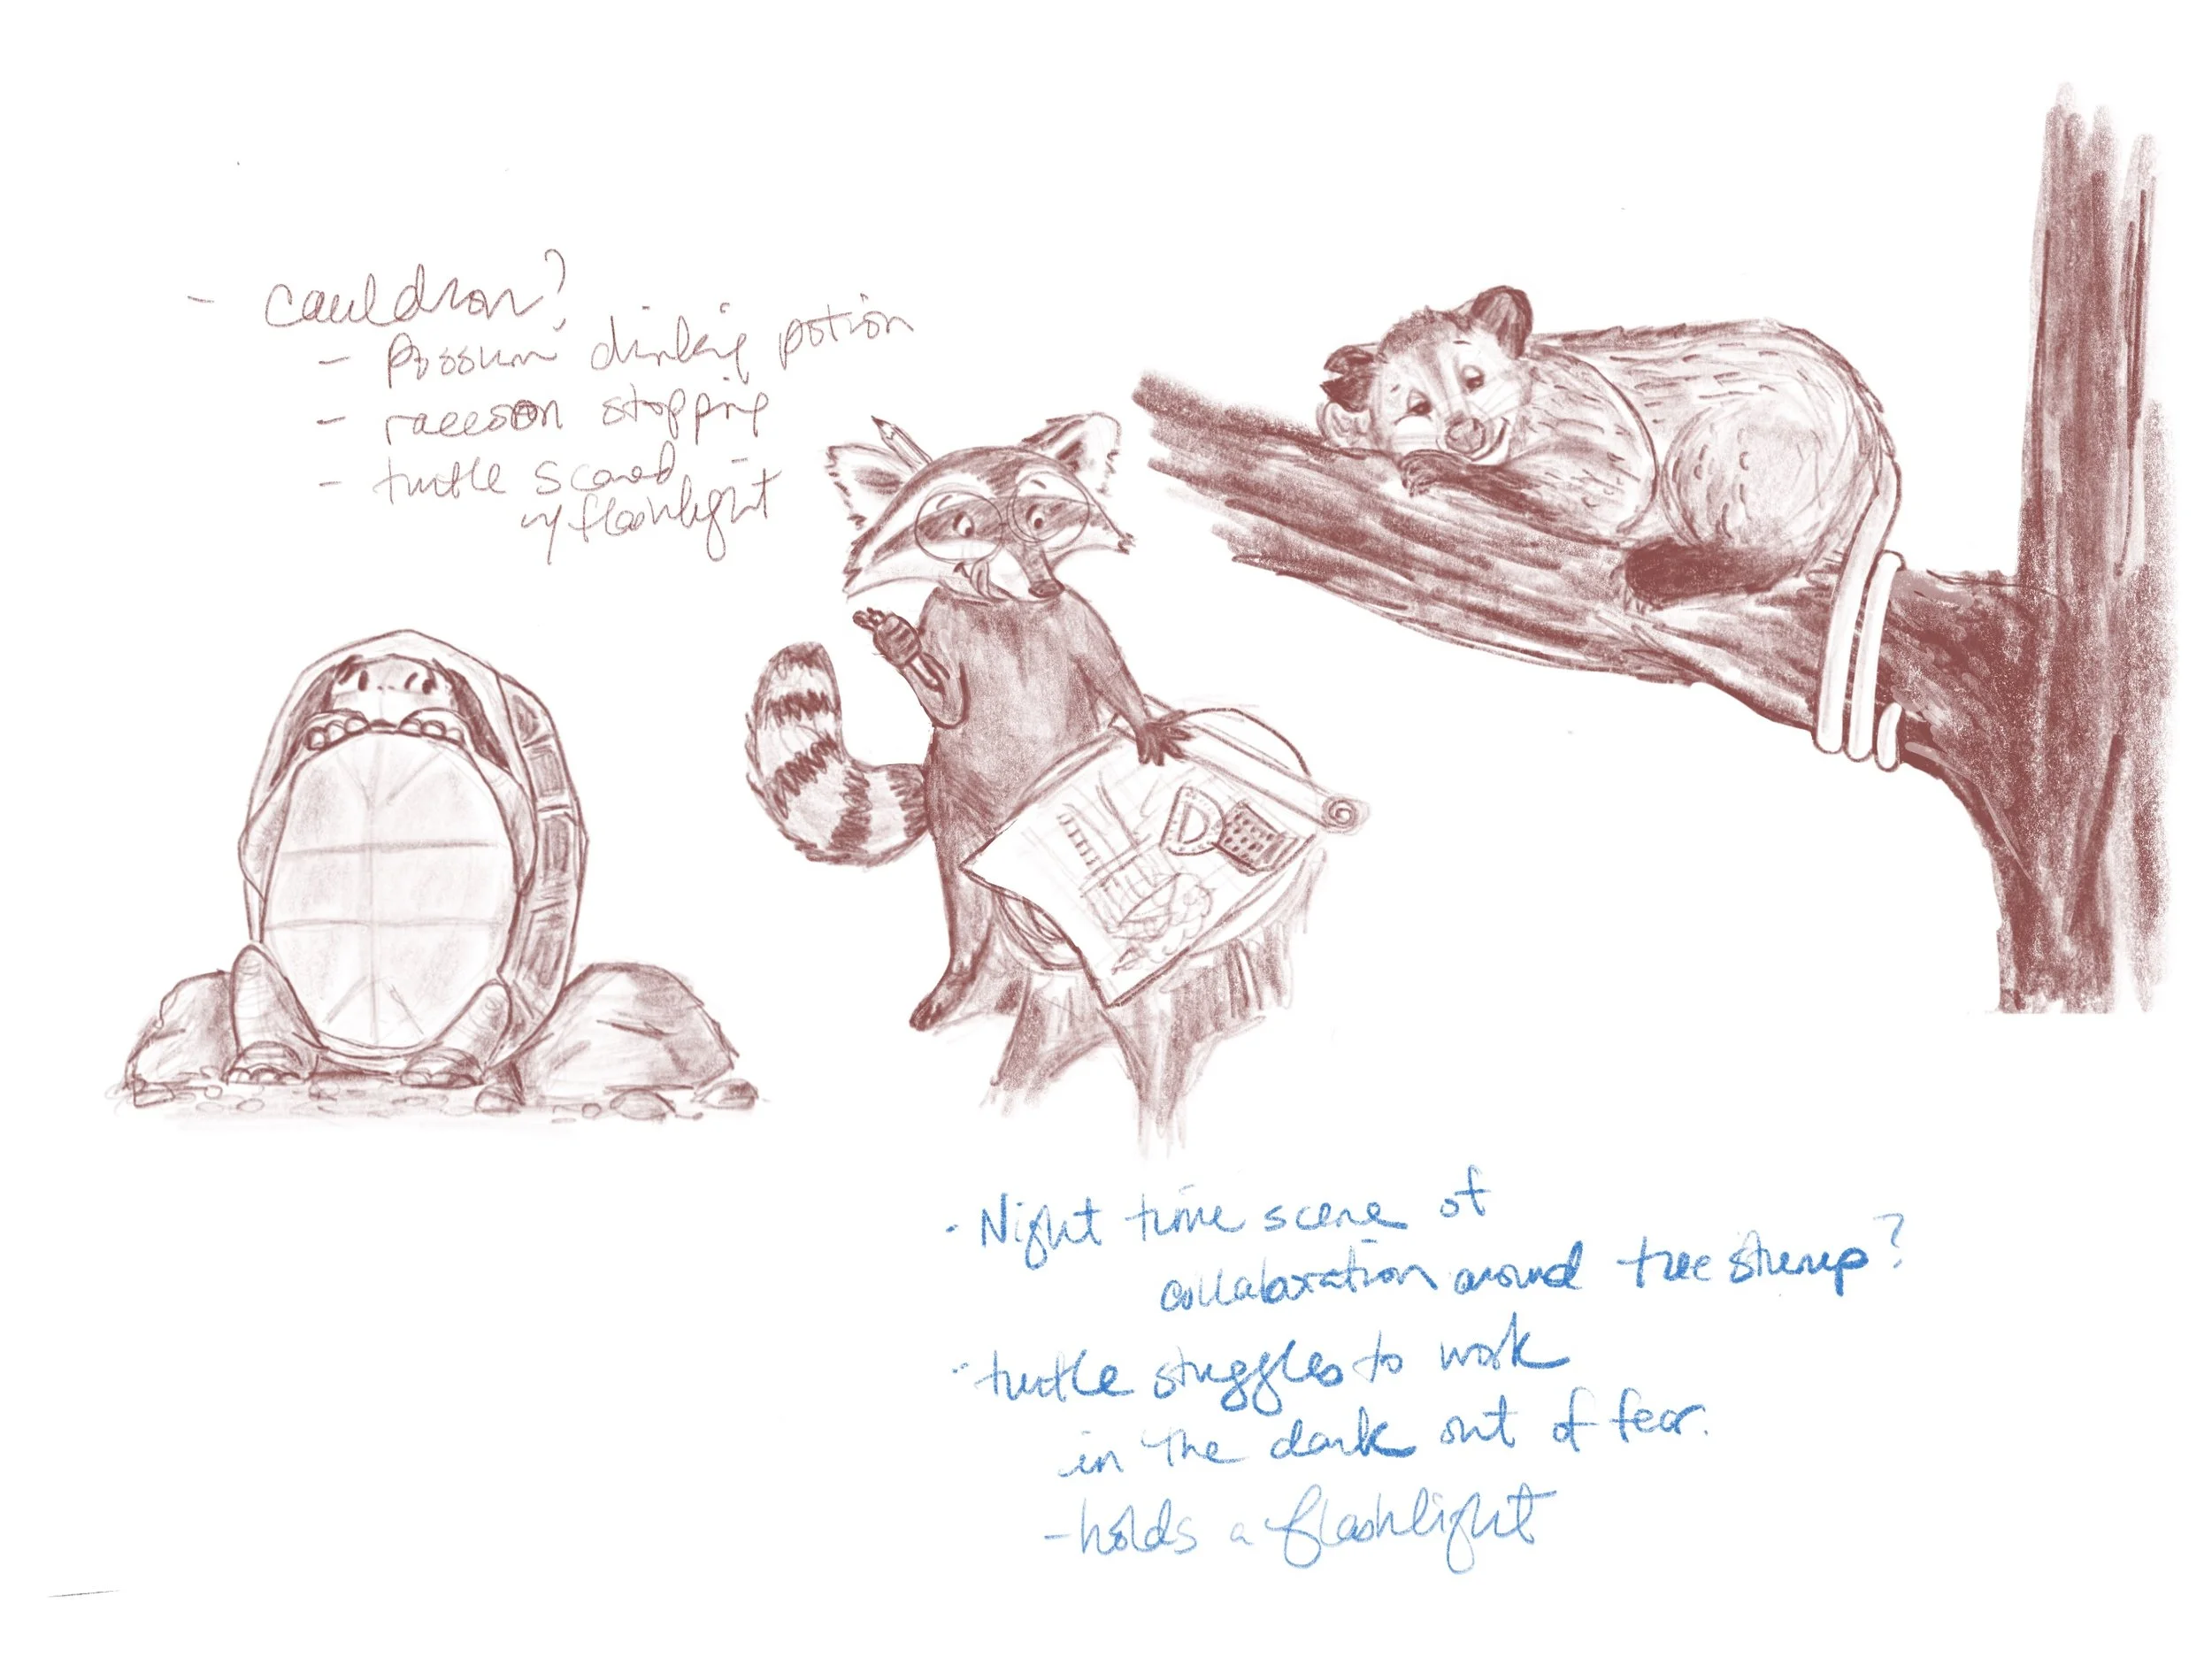 - cauldron?
- possum drinking potion
- raccoon stopping
- turtle scared
w/ flashlight
- Night time scene of
collaboration around tree stump?
- turtle stuggles to work
in the dark out of fear.
- holds a flashlight